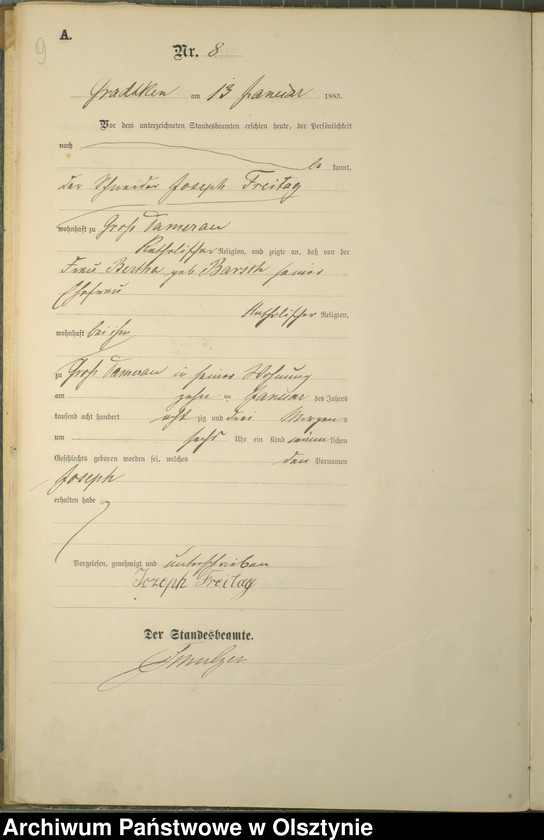 A.
9
Nr. 8
Gradtken am 13 Januar 1883.
Vor dem unterzeichneten Standesbeamten erschien heute, der Persönlichkeit
nach
be kannt,
der Schneider Joseph Freitag
wohnhaft zu Groß Damerau
Katholischer Religion, und zeigte an, daß von der
Frau Bertha geb Barsch seiner
Ehefrau
Katholischer Religion,
wohnhaft bei ihm
zu Groß Damerau in seiner Wohnung
am zehn ten Januar des Jahres
tausend acht hundert acht zig und drei Morgens
um sechs Uhr ein Kind männlichen
Geschlechts geboren worden sei, welches den Vornamen
Joseph
erhalten habe
Vorgelesen, genehmigt und unterschrieben
Jozeph Freitag
Der Standesbeamte.
Archiwum Państwowe w Olsztynie